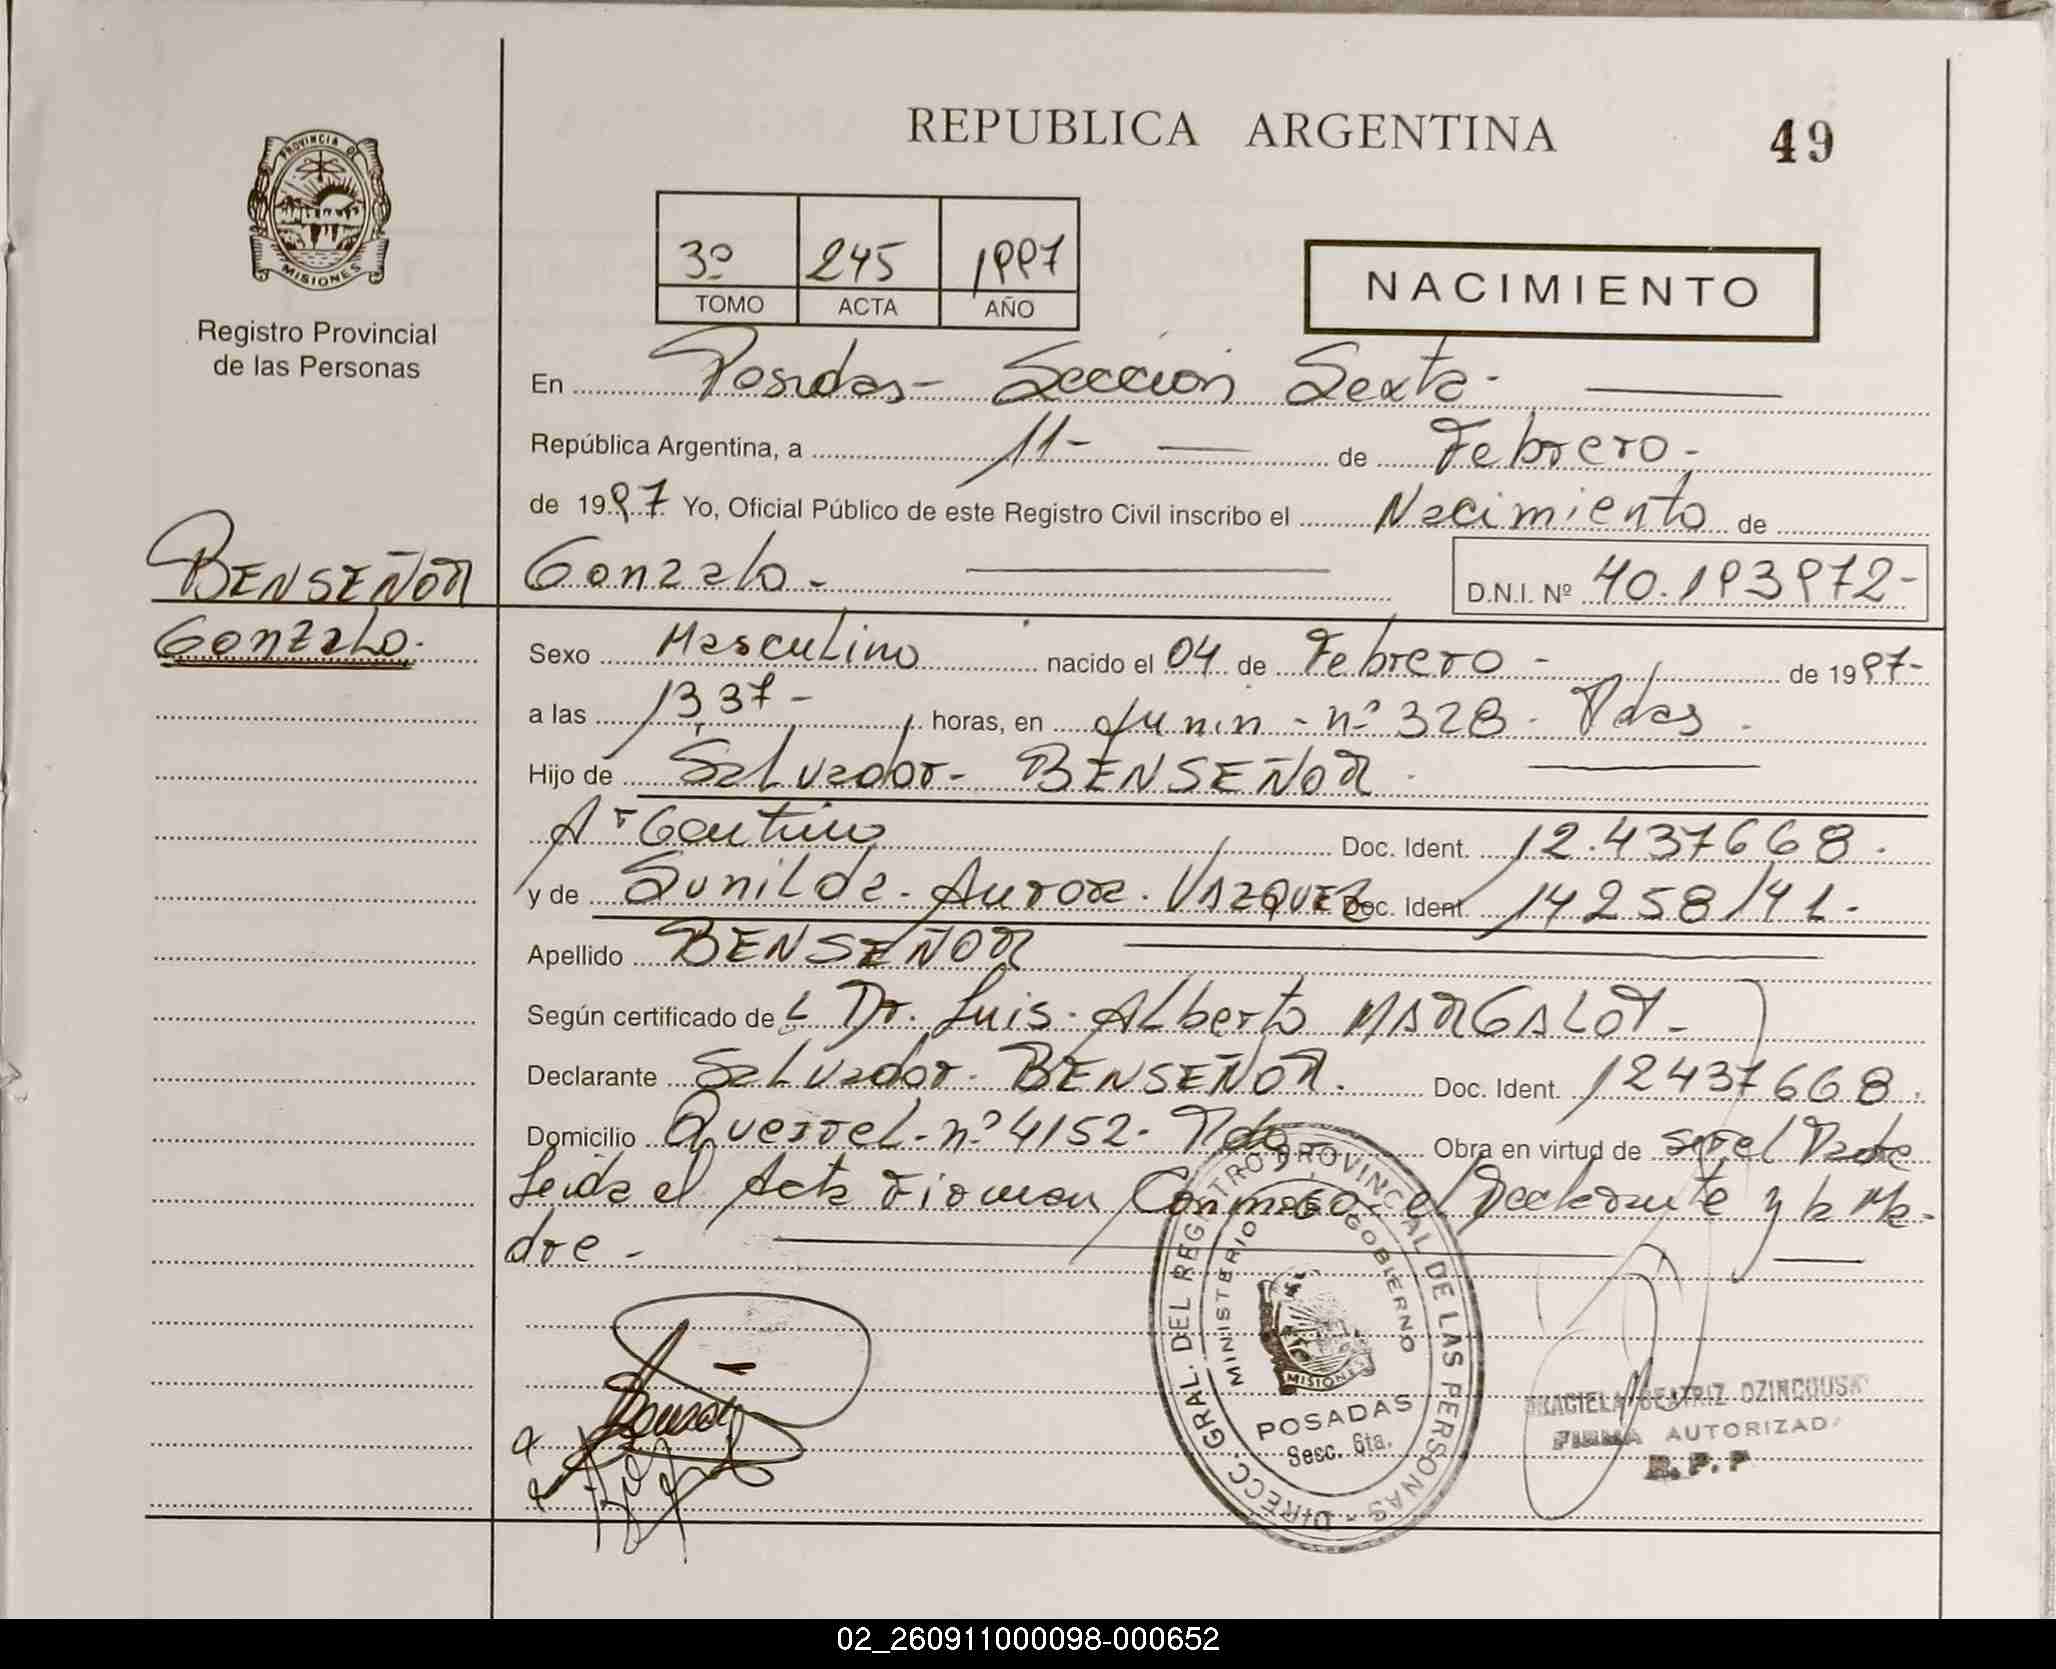 REPUBLICA ARGENTINA
49
PROVINCIA DE
MISIONES
Registro Provincial
de las Personas
3º 245 1997
TOMO ACTA AÑO
NACIMIENTO
En Posadas - Sección Sexta -
República Argentina, a 11 - de Febrero -
de 1997 Yo, Oficial Público de este Registro Civil inscribo el Nacimiento de
BENSEÑOR
Gonzalo -
D.N.I. Nº 40.193972 -
Gonzalo.
Sexo Masculino nacido el 04 de Febrero - de 1997 -
a las 13,37 - horas, en Junin - nº 328 - Pdas.
Hijo de Salvador - BENSEÑOR.
Argentino Doc. Ident. 12.437668.
y de Sunilda - Aurora. VAZQUEZ Doc. Ident. 14258141 -
Apellido BENSEÑOR
Según certificado del Dr. Luis. Alberto MARGALOT -
Declarante Salvador. BENSEÑOR. Doc. Ident. 12437668.
Domicilio nº 4152 - Pdas Obra en virtud de ser el Padre
Leida el Acta Firman Conmigo el Declarante y la Ma-
dre -
DIRECC. GRAL. DEL REGISTRO PROVINCIAL DE LAS PERSONAS -
MINISTERIO DE GOBIERNO
MISIONES
POSADAS
Secc. 6ta.
GRACIELA BEATRIZ
FIRMA AUTORIZADA
R.P.P
02_260911000098-000652